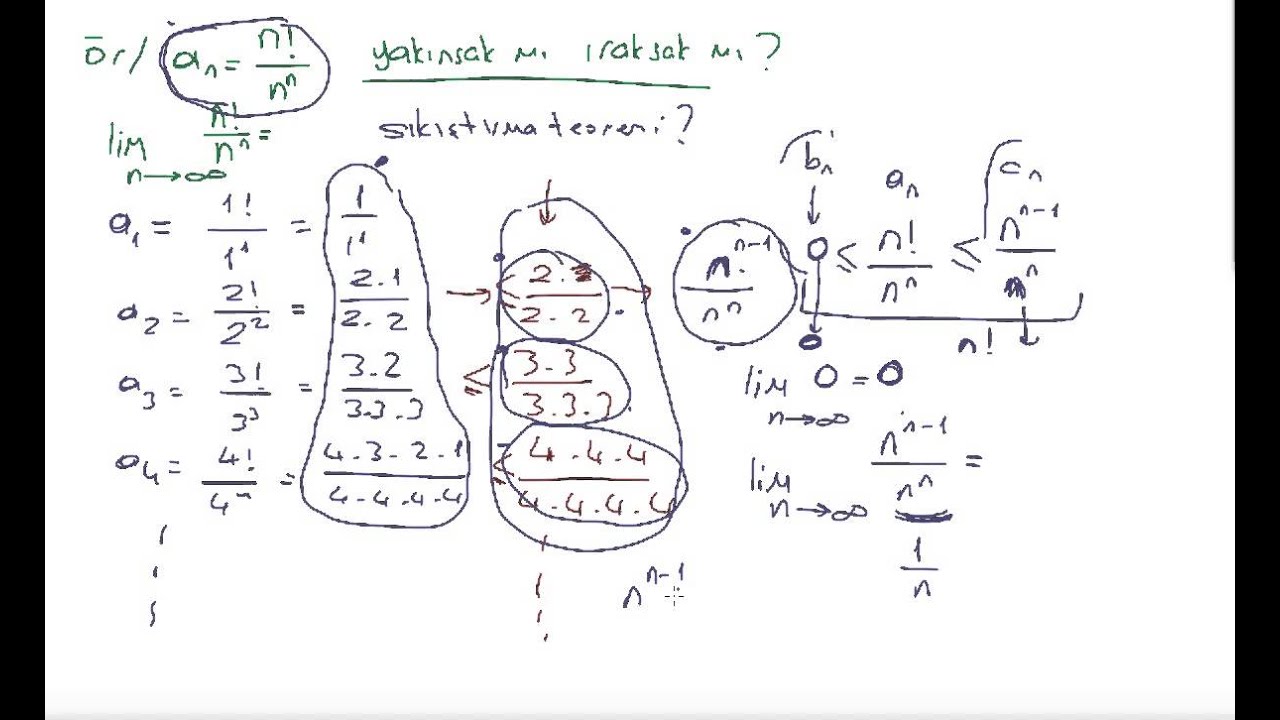 ör/ aₙ = n!/nⁿ yakınsak mı ıraksak mı?
lim n→∞ n!/nⁿ =
sıkıştırma teoremi?
a₁ = 1!/1¹ = 1/1¹
a₂ = 2!/2² = 2.1/2.2 ≤ 2./2.2
a₃ = 3!/3³ = 3.2/3.3.3 ≤ 3.3/3.3.3
a₄ = 4!/4ⁿ = 4.3.2.1/4.4.4.4 ≤ 4.4.4/4.4.4.4
nⁿ⁻¹
nⁿ⁻¹/nⁿ
bₙ aₙ cₙ
0 ≤ n!/nⁿ ≤ nⁿ⁻¹/nⁿ
0 n!
lim n→∞ 0 = 0
lim n→∞ nⁿ⁻¹/nⁿ =
1/n